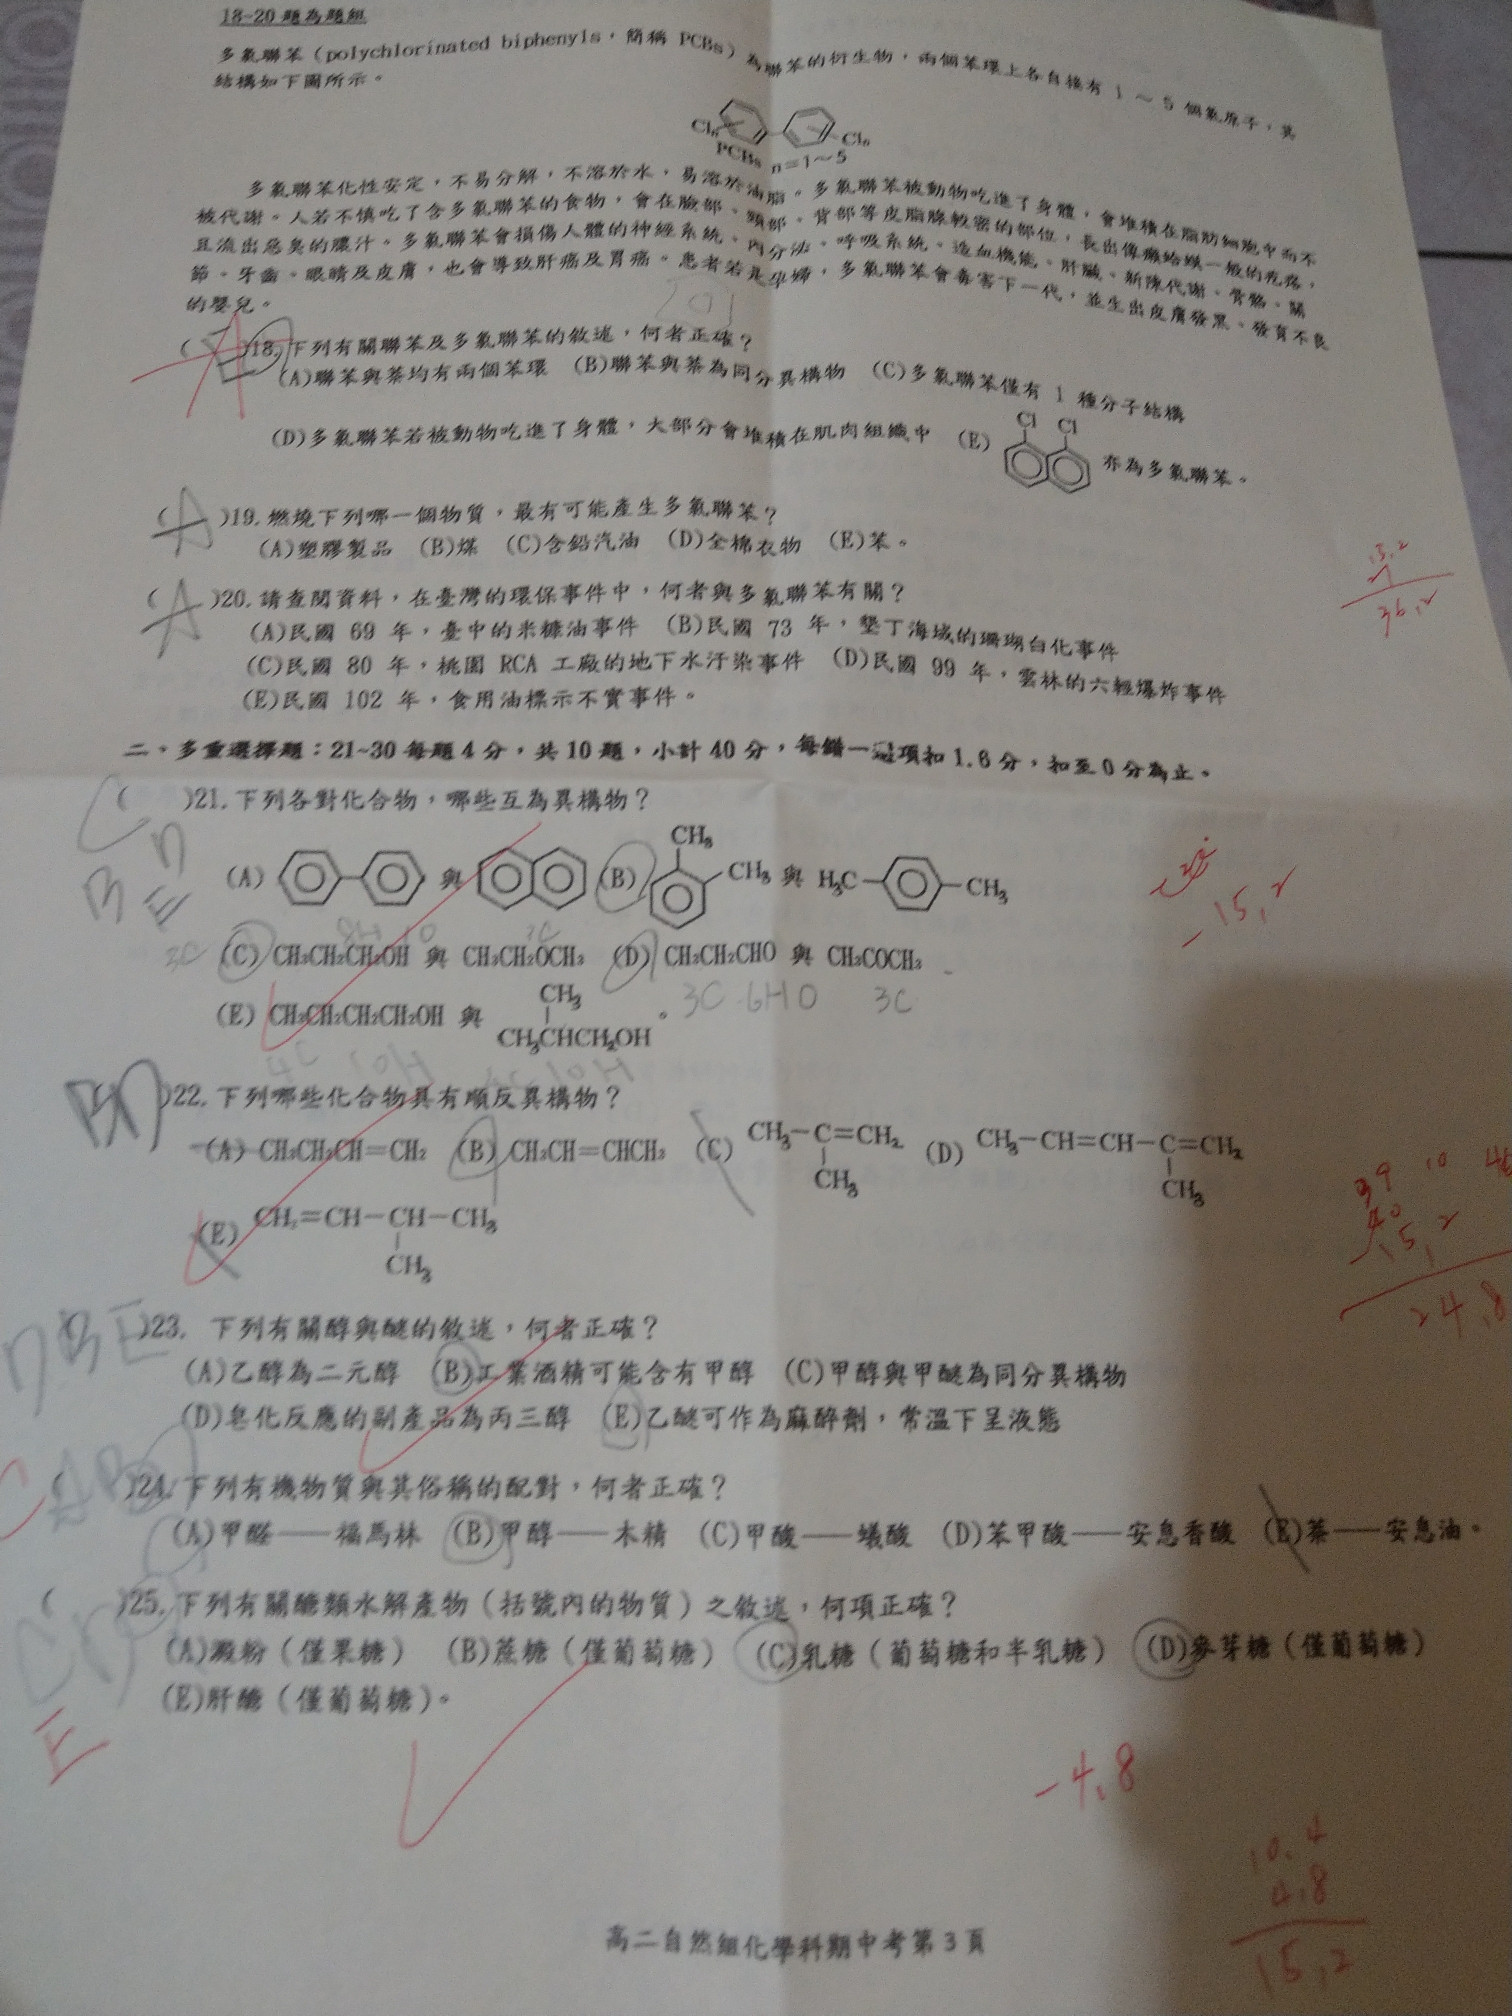 18-20 題為題組
多氯聯苯(polychlorinated biphenyls,簡稱 PCBs)為聯苯的衍生物,兩個苯環上各自接有 1~5 個氯原子,其
結構如下圖所示。
Clₙ Clₙ
PCBs n=1~5
多氯聯苯化性安定,不易分解,不溶於水,易溶於油脂。多氯聯苯被動物吃進了身體,會堆積在脂肪細胞中而不
被代謝。人若不慎吃了含多氯聯苯的食物,會在臉部、頸部、背部等皮脂腺較密的部位,長出像癩蛤蟆一般的疙瘩,
且流出惡臭的膿汁。多氯聯苯會損傷人體的神經系統、內分泌、呼吸系統、造血機能、肝臟、新陳代謝、骨骼、關
節、牙齒、眼睛及皮膚,也會導致肝癌及胃癌。患者若是孕婦,多氯聯苯會毒害下一代,並生出皮膚發黑、發育不良
的嬰兒。
A
( )18.下列有關聯苯及多氯聯苯的敘述,何者正確?
(A)聯苯與萘均有兩個苯環 (B)聯苯與萘為同分異構物 (C)多氯聯苯僅有 1 種分子結構
Cl Cl
(D)多氯聯苯若被動物吃進了身體,大部分會堆積在肌肉組織中 (E) 亦為多氯聯苯。
(A)19.燃燒下列哪一個物質,最有可能產生多氯聯苯?
(A)塑膠製品 (B)煤 (C)含鉛汽油 (D)全棉衣物 (E)苯。
15.2
21
36.2
(A)20.請查閱資料,在臺灣的環保事件中,何者與多氯聯苯有關?
(A)民國 69 年,臺中的米糠油事件 (B)民國 73 年,墾丁海域的珊瑚白化事件
(C)民國 80 年,桃園 RCA 工廠的地下水汙染事件 (D)民國 99 年,雲林的六輕爆炸事件
(E)民國 102 年,食用油標示不實事件。
二、多重選擇題:21~30 每題 4 分,共 10 題,小計 40 分,每錯一選項扣 1.6 分,扣至 0 分為止。
( )21.下列各對化合物,哪些互為異構物?
C D
B E
CH₃
(A) 與 (B) CH₃ 與 H₃C CH₃
-15.2
3C 8H O 3C
(C) CH₃CH₂CH₂OH 與 CH₃CH₂OCH₃ (D) CH₃CH₂CHO 與 CH₃COCH₃
3C 6HO 3C
CH₃
(E) CH₃CH₂CH₂CH₂OH 與 CH₃CHCH₂OH 。
4C 10H
(BD)22.下列哪些化合物具有順反異構物?
(A) CH₃CH₂CH=CH₂ (B) CH₃CH=CHCH₃ (C) CH₃-C=CH₂ (D) CH₃-CH=CH-C=CH₂
CH₃ CH₃
(E) CH₂=CH-CH-CH₃
CH₃
39 10
40
-15.2
24.8
DBE
( )23. 下列有關醇與醚的敘述,何者正確?
(A)乙醇為二元醇 (B)工業酒精可能含有甲醇 (C)甲醇與甲醚為同分異構物
(D)皂化反應的副產品為丙三醇 (E)乙醚可作為麻醉劑,常溫下呈液態
( )24.下列有機物質與其俗稱的配對,何者正確?
(A)甲醛——福馬林 (B)甲醇——木精 (C)甲酸——蟻酸 (D)苯甲酸——安息香酸 (E)萘——安息油。
( )25.下列有關醣類水解產物(括號內的物質)之敘述,何項正確?
(A)澱粉(僅果糖) (B)蔗糖(僅葡萄糖) (C)乳糖(葡萄糖和半乳糖) (D)麥芽糖(僅葡萄糖)
(E)肝醣(僅葡萄糖)。
E
-4.8
10.4
4.8
15.2
高二自然組化學科期中考第 3 頁